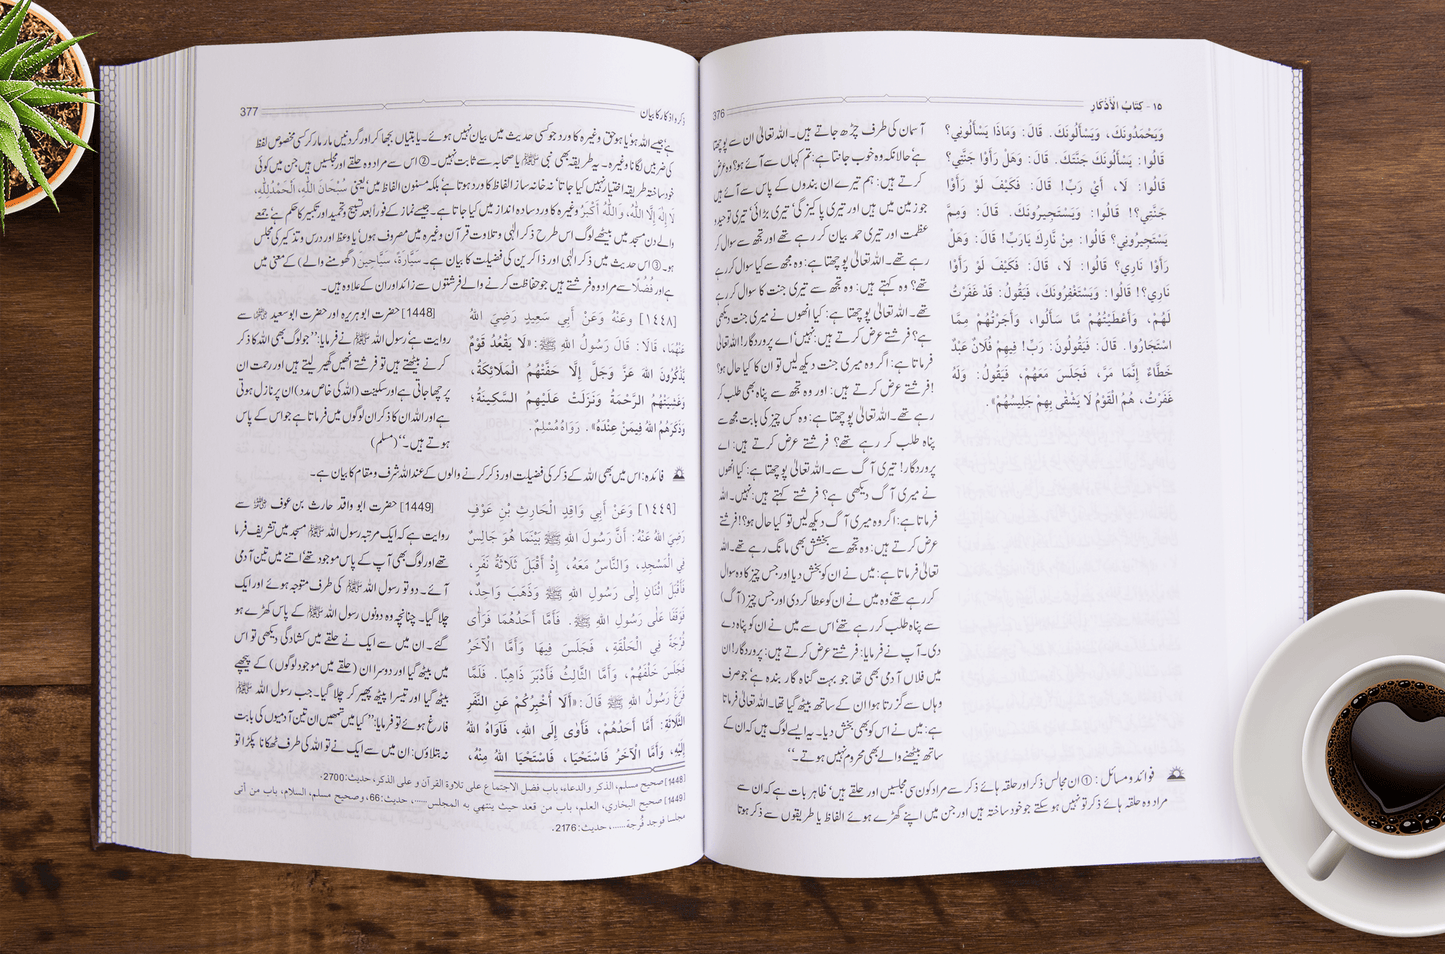 ١٥ - كتاب الأذكار
376
وَيَحْمَدُونَكَ، وَيَسْأَلُونَكَ. قَالَ: وَمَاذَا يَسْأَلُونِي؟
قَالُوا: يَسْأَلُونَكَ جَنَّتَكَ. قَالَ: وَهَلْ رَأَوْا جَنَّتِي؟
قَالُوا: لَا، أَيْ رَبِّ! قَالَ: فَكَيْفَ لَوْ رَأَوْا
جَنَّتِي؟! قَالُوا: وَيَسْتَجِيرُونَكَ. قَالَ: وَمِمَّ
يَسْتَجِيرُونِي؟ قَالُوا: مِنْ نَّارِكَ يَارَبِّ! قَالَ: وَهَلْ
رَأَوْا نَارِي؟ قَالُوا: لَا، قَالَ: فَكَيْفَ لَوْ رَأَوْا
نَارِي؟! قَالُوا: وَيَسْتَغْفِرُونَكَ، فَيَقُولُ: قَدْ غَفَرْتُ
لَهُمْ، وَأَعْطَيْتُهُمْ مَّا سَأَلُوا، وَأَجَرْتُهُمْ مِمَّا
اسْتَجَارُوا. قَالَ: فَيَقُولُونَ: رَبِّ! فِيهِمْ فُلَانٌ عَبْدٌ
خَطَّاءٌ إِنَّمَا مَرَّ، فَجَلَسَ مَعَهُمْ، فَيَقُولُ: وَلَهُ
غَفَرْتُ، هُمُ الْقَوْمُ لَا يَشْقَى بِهِمْ جَلِيسُهُمْ».
آسمان کی طرف چڑھ جاتے ہیں۔ اللہ تعالیٰ ان سے پوچھتا
ہے حالانکہ وہ خوب جانتا ہے: تم کہاں سے آئے ہو؟ وہ عرض
کرتے ہیں: ہم تیرے ان بندوں کے پاس سے آئے ہیں
جو زمین میں ہیں اور تیری پاکیزگی، تیری بڑائی، تیری توحید و
عظمت اور تیری حمد بیان کر رہے تھے اور تجھ سے سوال کر
رہے تھے۔ اللہ تعالیٰ پوچھتا ہے: وہ مجھ سے کیا سوال کر رہے
تھے؟ وہ کہتے ہیں: وہ تجھ سے تیری جنت کا سوال کر رہے
تھے۔ اللہ تعالیٰ پوچھتا ہے: کیا انھوں نے میری جنت دیکھی
ہے؟ فرشتے عرض کرتے ہیں: نہیں اے پروردگار! اللہ تعالیٰ
فرماتا ہے: اگر وہ میری جنت دیکھ لیں تو ان کا کیا حال ہو؟
!فرشتے عرض کرتے ہیں: اور وہ تجھ سے پناہ بھی طلب کر
رہے تھے۔ اللہ تعالیٰ پوچھتا ہے: وہ کس چیز کی بابت مجھ سے
پناہ طلب کر رہے تھے؟ فرشتے عرض کرتے ہیں: اے
پروردگار! تیری آگ سے۔ اللہ تعالیٰ پوچھتا ہے: کیا انھوں
نے میری آگ دیکھی ہے؟ فرشتے کہتے ہیں: نہیں۔ اللہ
فرماتا ہے: اگر وہ میری آگ دیکھ لیں تو کیا حال ہو؟! فرشتے
عرض کرتے ہیں: وہ تجھ سے بخشش بھی مانگ رہے تھے۔ اللہ
تعالیٰ فرماتا ہے: میں نے ان کو بخش دیا اور جس چیز کا وہ سوال
کر رہے تھے، وہ میں نے ان کو عطا کر دی اور جس چیز (آگ)
سے پناہ طلب کر رہے تھے، اس سے میں نے ان کو پناہ دے
دی۔ آپ نے فرمایا: فرشتے عرض کرتے ہیں: پروردگار! ان
میں فلاں آدمی بھی تھا جو بہت گناہ گار بندہ ہے جو صرف
وہاں سے گزر رہا تھا ان کے ساتھ بیٹھ گیا تھا۔ اللہ تعالیٰ فرماتا
ہے: میں نے اس کو بھی بخش دیا۔ یہ ایسے لوگ ہیں کہ ان کے
ساتھ بیٹھنے والے بھی محروم نہیں ہوتے۔“
فوائد و مسائل: ① ان مجالس ذکر اور حلقہ ہائے ذکر سے مراد کون سی مجلسیں اور حلقے ہیں؟ ظاہر بات ہے کہ ان سے
مراد وہ حلقہ ہائے ذکر تو نہیں ہو سکتے جو خود ساختہ ہیں اور جن میں اپنے گھڑے ہوئے الفاظ یا طریقوں سے ذکر ہوتا
ذکر و اذکار کا بیان
377
ہے جیسے اللہ ہو یا ہو حق وغیرہ کا ورد جو کسی حدیث میں بیان نہیں ہوئے۔ یا بتیاں بجھا کر اور گردنیں مار مار کر کسی مخصوص لفظ
کی ضربیں لگانا وغیرہ۔ یہ طریقہ بھی نبی ﷺ یا صحابہ سے ثابت نہیں۔ ② اس سے مراد وہ حلقے اور مجلسیں ہیں جن میں کوئی
خود ساختہ طریقہ اختیار نہیں کیا جاتا، نہ خانہ ساز الفاظ کا ورد ہوتا ہے بلکہ مسنون الفاظ میں، یعنی سُبْحَانَ اللّٰهِ، اَلْحَمْدُلِلّٰهِ،
لَا إِلٰهَ إِلَّا اللّٰهُ، وَاللّٰهُ أَكْبَرُ وغیرہ کا ورد سادہ انداز میں کیا جاتا ہے۔ جیسے نماز کے فوراً بعد تسبیح و تحمید اور تکبیر کا حکم ہے، جمعے
والے دن مسجد میں بیٹھے لوگ اس طرح ذکر الٰہی و تلاوت قرآن وغیرہ میں مصروف ہوں، یا وعظ اور درس و تذکیر کی مجلس
ہو۔ ③ اس حدیث میں ذکر الٰہی اور ذاکرین کی فضیلت کا بیان ہے۔ سَيَّارَة، سَيَّاحِين (گھومنے والے) کے معنی میں
ہے اور فُضُلًا سے مراد وہ فرشتے ہیں جو حفاظت کرنے والے فرشتوں سے زائد اور ان کے علاوہ ہیں۔
[١٤٤٨] وَعَنْهُ وَعَنْ أَبِي سَعِيدٍ رَضِيَ اللهُ
عَنْهُمَا، قَالَا: قَالَ رَسُولُ اللهِ ﷺ: «لَا يَقْعُدُ قَوْمٌ
يَّذْكُرُونَ اللهَ عَزَّ وَجَلَّ إِلَّا حَفَّتْهُمُ الْمَلَائِكَةُ،
وَغَشِيَتْهُمُ الرَّحْمَةُ وَنَزَلَتْ عَلَيْهِمُ السَّكِينَةُ؛
وَذَكَرَهُمُ اللهُ فِيمَنْ عِنْدَهُ». رَوَاهُ مُسْلِمٌ.
[1448] حضرت ابو ہریرہ اور حضرت ابو سعید سے
روایت ہے، رسول اللہ ﷺ نے فرمایا: ”جو لوگ بھی اللہ کا ذکر
کرنے بیٹھتے ہیں تو فرشتے انھیں گھیر لیتے ہیں اور رحمت ان
پر چھا جاتی ہے اور سکینت (اللہ کی خاص مدد) ان پر نازل ہوتی
ہے اور اللہ ان کا ذکر ان لوگوں میں فرماتا ہے جو اس کے پاس
ہوتے ہیں۔“ (مسلم)
فائدہ: اس میں بھی اللہ کے ذکر کی فضیلت اور ذکر کرنے والوں کے عند اللہ شرف و مقام کا بیان ہے۔
[١٤٤٩] وَعَنْ أَبِي وَاقِدٍ الْحَارِثِ بْنِ عَوْفٍ
رَضِيَ اللهُ عَنْهُ: أَنَّ رَسُولَ اللهِ ﷺ بَيْنَمَا هُوَ جَالِسٌ
فِي الْمَسْجِدِ، وَالنَّاسُ مَعَهُ، إِذْ أَقْبَلَ ثَلَاثَةُ نَفَرٍ،
فَأَقْبَلَ اثْنَانِ إِلَى رَسُولِ اللهِ ﷺ وَذَهَبَ وَاحِدٌ،
فَوَقَفَا عَلَى رَسُولِ اللهِ ﷺ. فَأَمَّا أَحَدُهُمَا فَرَأَى
فُرْجَةً فِي الْحَلْقَةِ، فَجَلَسَ فِيهَا وَأَمَّا الْآخَرُ
فَجَلَسَ خَلْفَهُمْ، وَأَمَّا الثَّالِثُ فَأَدْبَرَ ذَاهِبًا. فَلَمَّا
فَرَغَ رَسُولُ اللهِ ﷺ قَالَ: «أَلَا أُخْبِرُكُمْ عَنِ النَّفَرِ
الثَّلَاثَةِ: أَمَّا أَحَدُهُمْ، فَأَوَى إِلَى اللهِ، فَآوَاهُ اللهُ
إِلَيْهِ، وَأَمَّا الْآخَرُ فَاسْتَحْيَا، فَاسْتَحْيَا اللهُ مِنْهُ،
[1449] حضرت ابو واقد حارث بن عوف سے
روایت ہے کہ ایک مرتبہ رسول اللہ ﷺ مسجد میں تشریف فرما
تھے اور لوگ بھی آپ کے پاس موجود تھے، اتنے میں تین آدمی
آئے۔ دو تو رسول اللہ ﷺ کی طرف متوجہ ہوئے اور ایک
چلا گیا۔ چنانچہ وہ دونوں رسول اللہ ﷺ کے پاس کھڑے ہو
گئے۔ ان میں سے ایک نے حلقے میں کشادگی دیکھی تو اس
میں بیٹھ گیا اور دوسرا ان (حلقے میں موجود لوگوں) کے پیچھے
بیٹھ گیا اور تیسرا پیٹھ پھیر کر چلا گیا۔ جب رسول اللہ ﷺ
فارغ ہوئے تو فرمایا: ”کیا میں تمھیں ان تین آدمیوں کی بابت
نہ بتلاؤں: ان میں سے ایک نے تو اللہ کی طرف ٹھکانا پکڑا تو
[1448] صحيح مسلم، الذكر والدعاء، باب فضل الاجتماع على تلاوة القرآن و على الذكر، حديث: 2700.
[1449] صحيح البخاري، العلم، باب من قعد حيث ينتهي به المجلس .....، حديث: 66، وصحيح مسلم، السلام، باب من أتى
مجلسا فوجد فرجة .....، حديث: 2176.